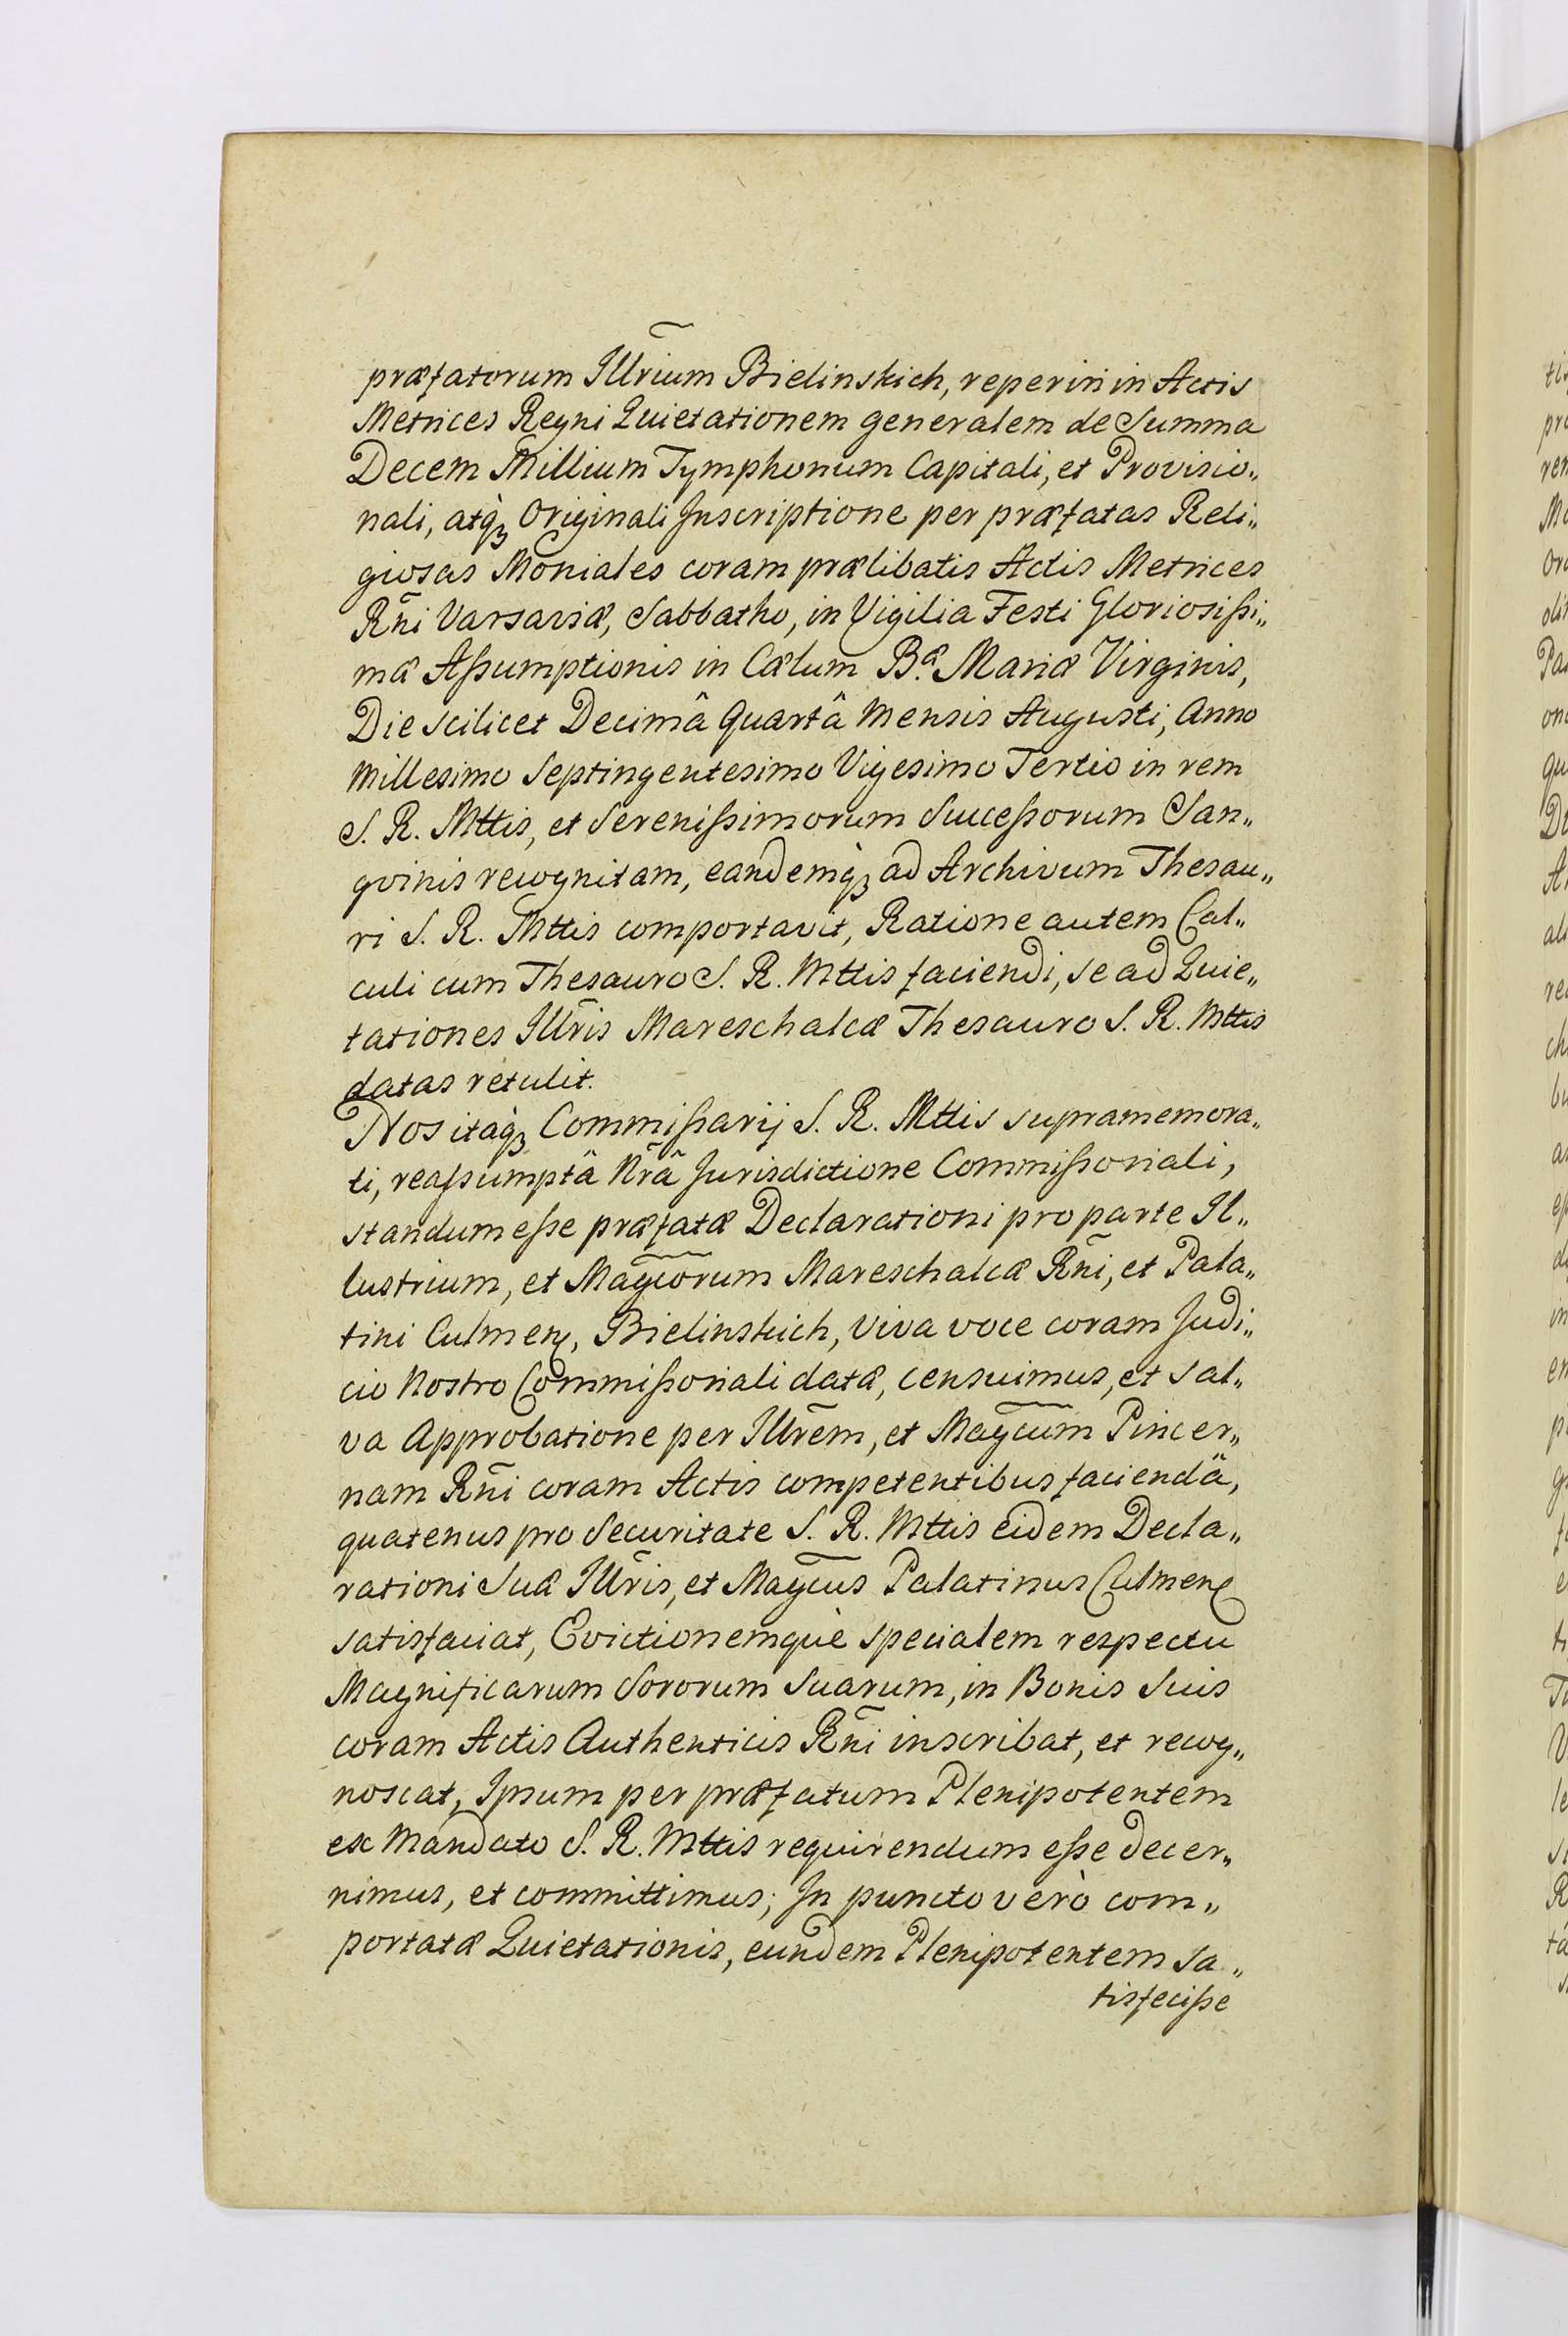 præfatorum Illr̃ium Bielinskich, reperiri in Actis
Metrices Regni Quietationem generalem de Summa
Decem Millium Tymphonum Capitali, et Provisio„
nali, atq̀ꝫ Originali Inscriptione per præfatas Reli„
giosas Moniales coram prælibatis Actis Metrices
Rñi Varsaviæ, Sabbatho, in Vigilia Festi Gloriosißi„
mæ Aßumptionis in Cælum B.æ Mariæ Virginis,
Die scilicet Decimâ Quartâ Mensis Augusti, Anno
Millesimo Septingentesimo Vigesimo Tertio in rem
S. R. Mttis, et Serenißimorum Succeßorum San„
gvinis recognitam, eandemq̀ꝫ ad Archivum Thesau„
ri S. R. Mttis comportavit, Ratione autem Cal„
culi cum Thesauro S. R. Mttis faciendi, se ad Quie„
tationes Illr̃is Mareschalcæ Thesauro S. R. Mttis
datas retulit.
Nos itaq̀ꝫ Commißarij S. R. Mttis supramemora„
ti, reaßumptâ Nr̃â Jurisdictione Commißoriali,
standum eße præfatæ Declarationi pro parte Il„
lustrium, et Magcõrum Mareschalcæ Rñi, et Pala„
tini Culmen̨, Bielinskich, viva voce coram Judi„
cio Nostro Commißoriali datæ, censuimus, et sal„
va Approbatione per Illr̃em, et Magc̃um Pincer„
nam Rñi coram Actis competentibus faciendâ,
quatenus pro Securitate S. R. Mttis eidem Decla„
rationi Suæ Illr̃is, et Magc̃us Palatinus Culmen̨
satisfaciat, Evictionemquè specialem respectu
Magnificarum Sororum Suarum, in Bonis Suis
coram Actis Authenticis Rñi inscribat, et recog„
noscat, Ipsum per præfatum Plenipotentem
ex Mandato S. R. Mttis requirendum eße decer„
nimus, et committimus; In puncto verò com„
portatæ Quietationis, eundem Plenipotentem sa„
tisfeciße